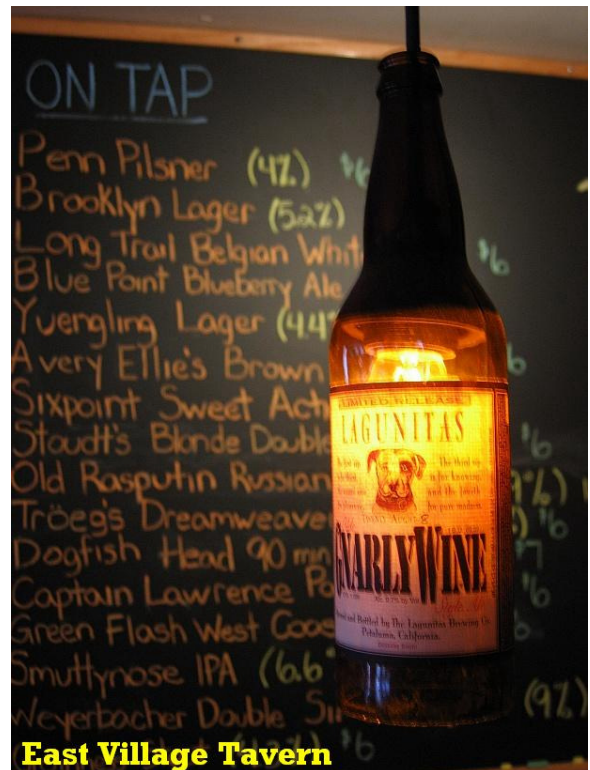 ON TAP
Penn Pilsner (4%) $6
Brooklyn Lager (5.2%)
Long Trail Belgian White $6
Blue Point Blueberry Ale
Yuengling Lager (4.4%
Avery Ellie's Brown
Sixpoint Sweet Acti
Stoudt's Blonde Double $6
Old Rasputin Russian 9%)
Tröeg's Dreamweaver $6
Dogfish Head 90 min $7
Captain Lawrence Pa
Green Flash West Coas
Smuttynose IPA (6.6
Weyerbacher Double Si (9%)
$6
LIMITED RELEASE
LAGUNITAS
GNARLYWINE
and Bottled by The Lagunitas Brewing Co.
Petaluma, California.
East Village Tavern